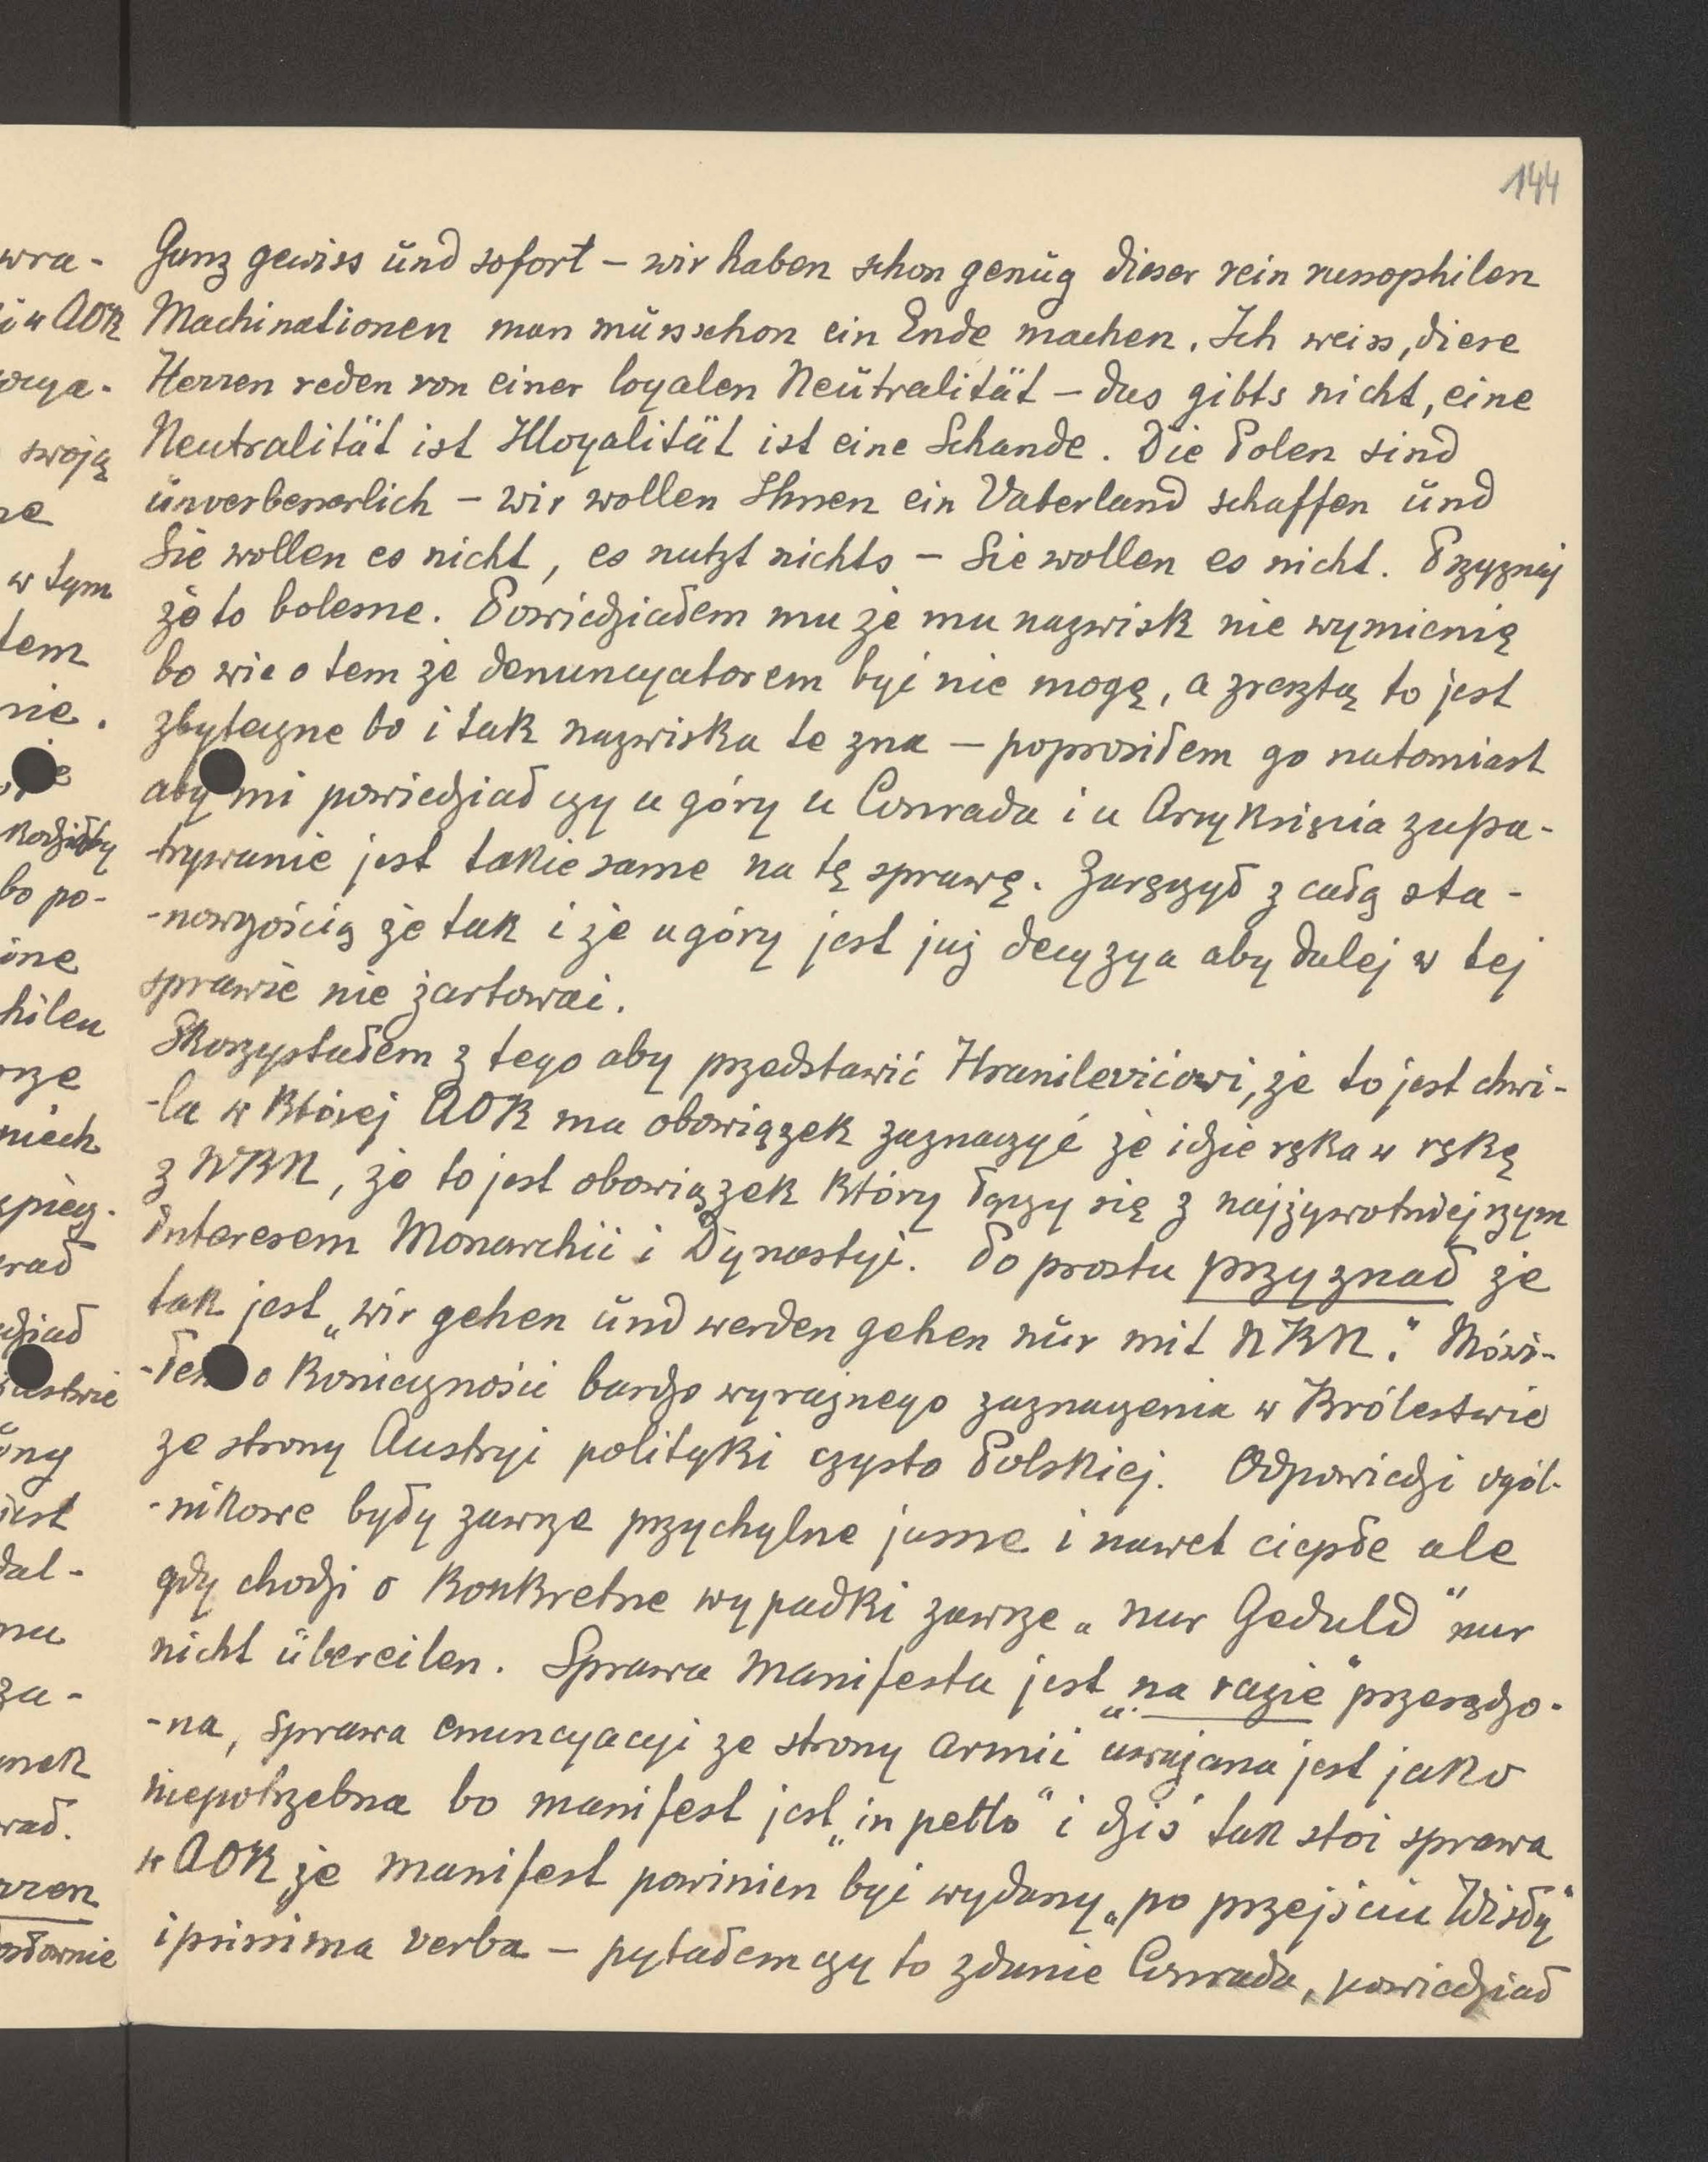 144
Ganz gewiss und sofort – wir haben schon genug dieser rein russophilen
Machinationen man muss schon ein Ende machen. Ich weiss, diese
Herren reden von einer loyalen Neutralität – das gibts nicht, eine
Neutralität ist Illoyalität ist eine Schande. Die Polen sind
unverbesserlich – wir wollen Ihnen ein Vaterland schaffen und
Sie wollen es nicht, es nutzt nichts – Sie wollen es nicht. Przyznaj
że to bolesne. Powiedziałem mu że mu nazwisk nie wymienię
bo wie o tem że denuncyatorem być nie mogę, a zresztą to jest
zbyteczne bo i tak nazwiska te zna – poprosiłem go natomiast
aby mi powiedział czy u góry u Conrada i u Arcyksięcia zapa-
-trywanie jest takie same na tę sprawę. Zaręczył z całą sta-
-nowczością że tak i że u góry jest już decyzya aby dalej w tej
sprawie nie żartować.
Skorzystałem z tego aby przedstawić Hranilevićowi, że to jest chwi-
-la w której AOK ma obowiązek zaznaczyć że idzie ręka w rękę
z NKN, że to jest obowiązek który łączy się z najżywotniejszym
interesem Monarchii i Dynastyi. Po prostu przyznał że
tak jest „wir gehen und werden gehen nur mit NKN." Mówi-
-łem o konieczności bardzo wyraźnego zaznaczenia w Królestwie
ze strony Austryi polityki czysto Polskiej. Odpowiedzi ogól-
-nikowe były zawsze przychylne jasne i nawet ciepłe ale
gdy chodzi o konkretne wypadki zawsze „nur Geduld" nur
nicht übereilen. Sprawa Manifestu jest „na razie" przesądzo-
-na, sprawa enuncyacyi ze strony Armii uważana jest jako
niepotrzebna bo manifest jest „in petto" i dziś tak stoi sprawa
w AOK że manifest powinien być wydany „po przejściu Wisły"
ipsissima verba – pytałem czy to zdanie Conrada, powiedział
wra-
i u AOK
swoją
w tym
tem
nie.
bo po-
niech
rad
jest
dal-
za-